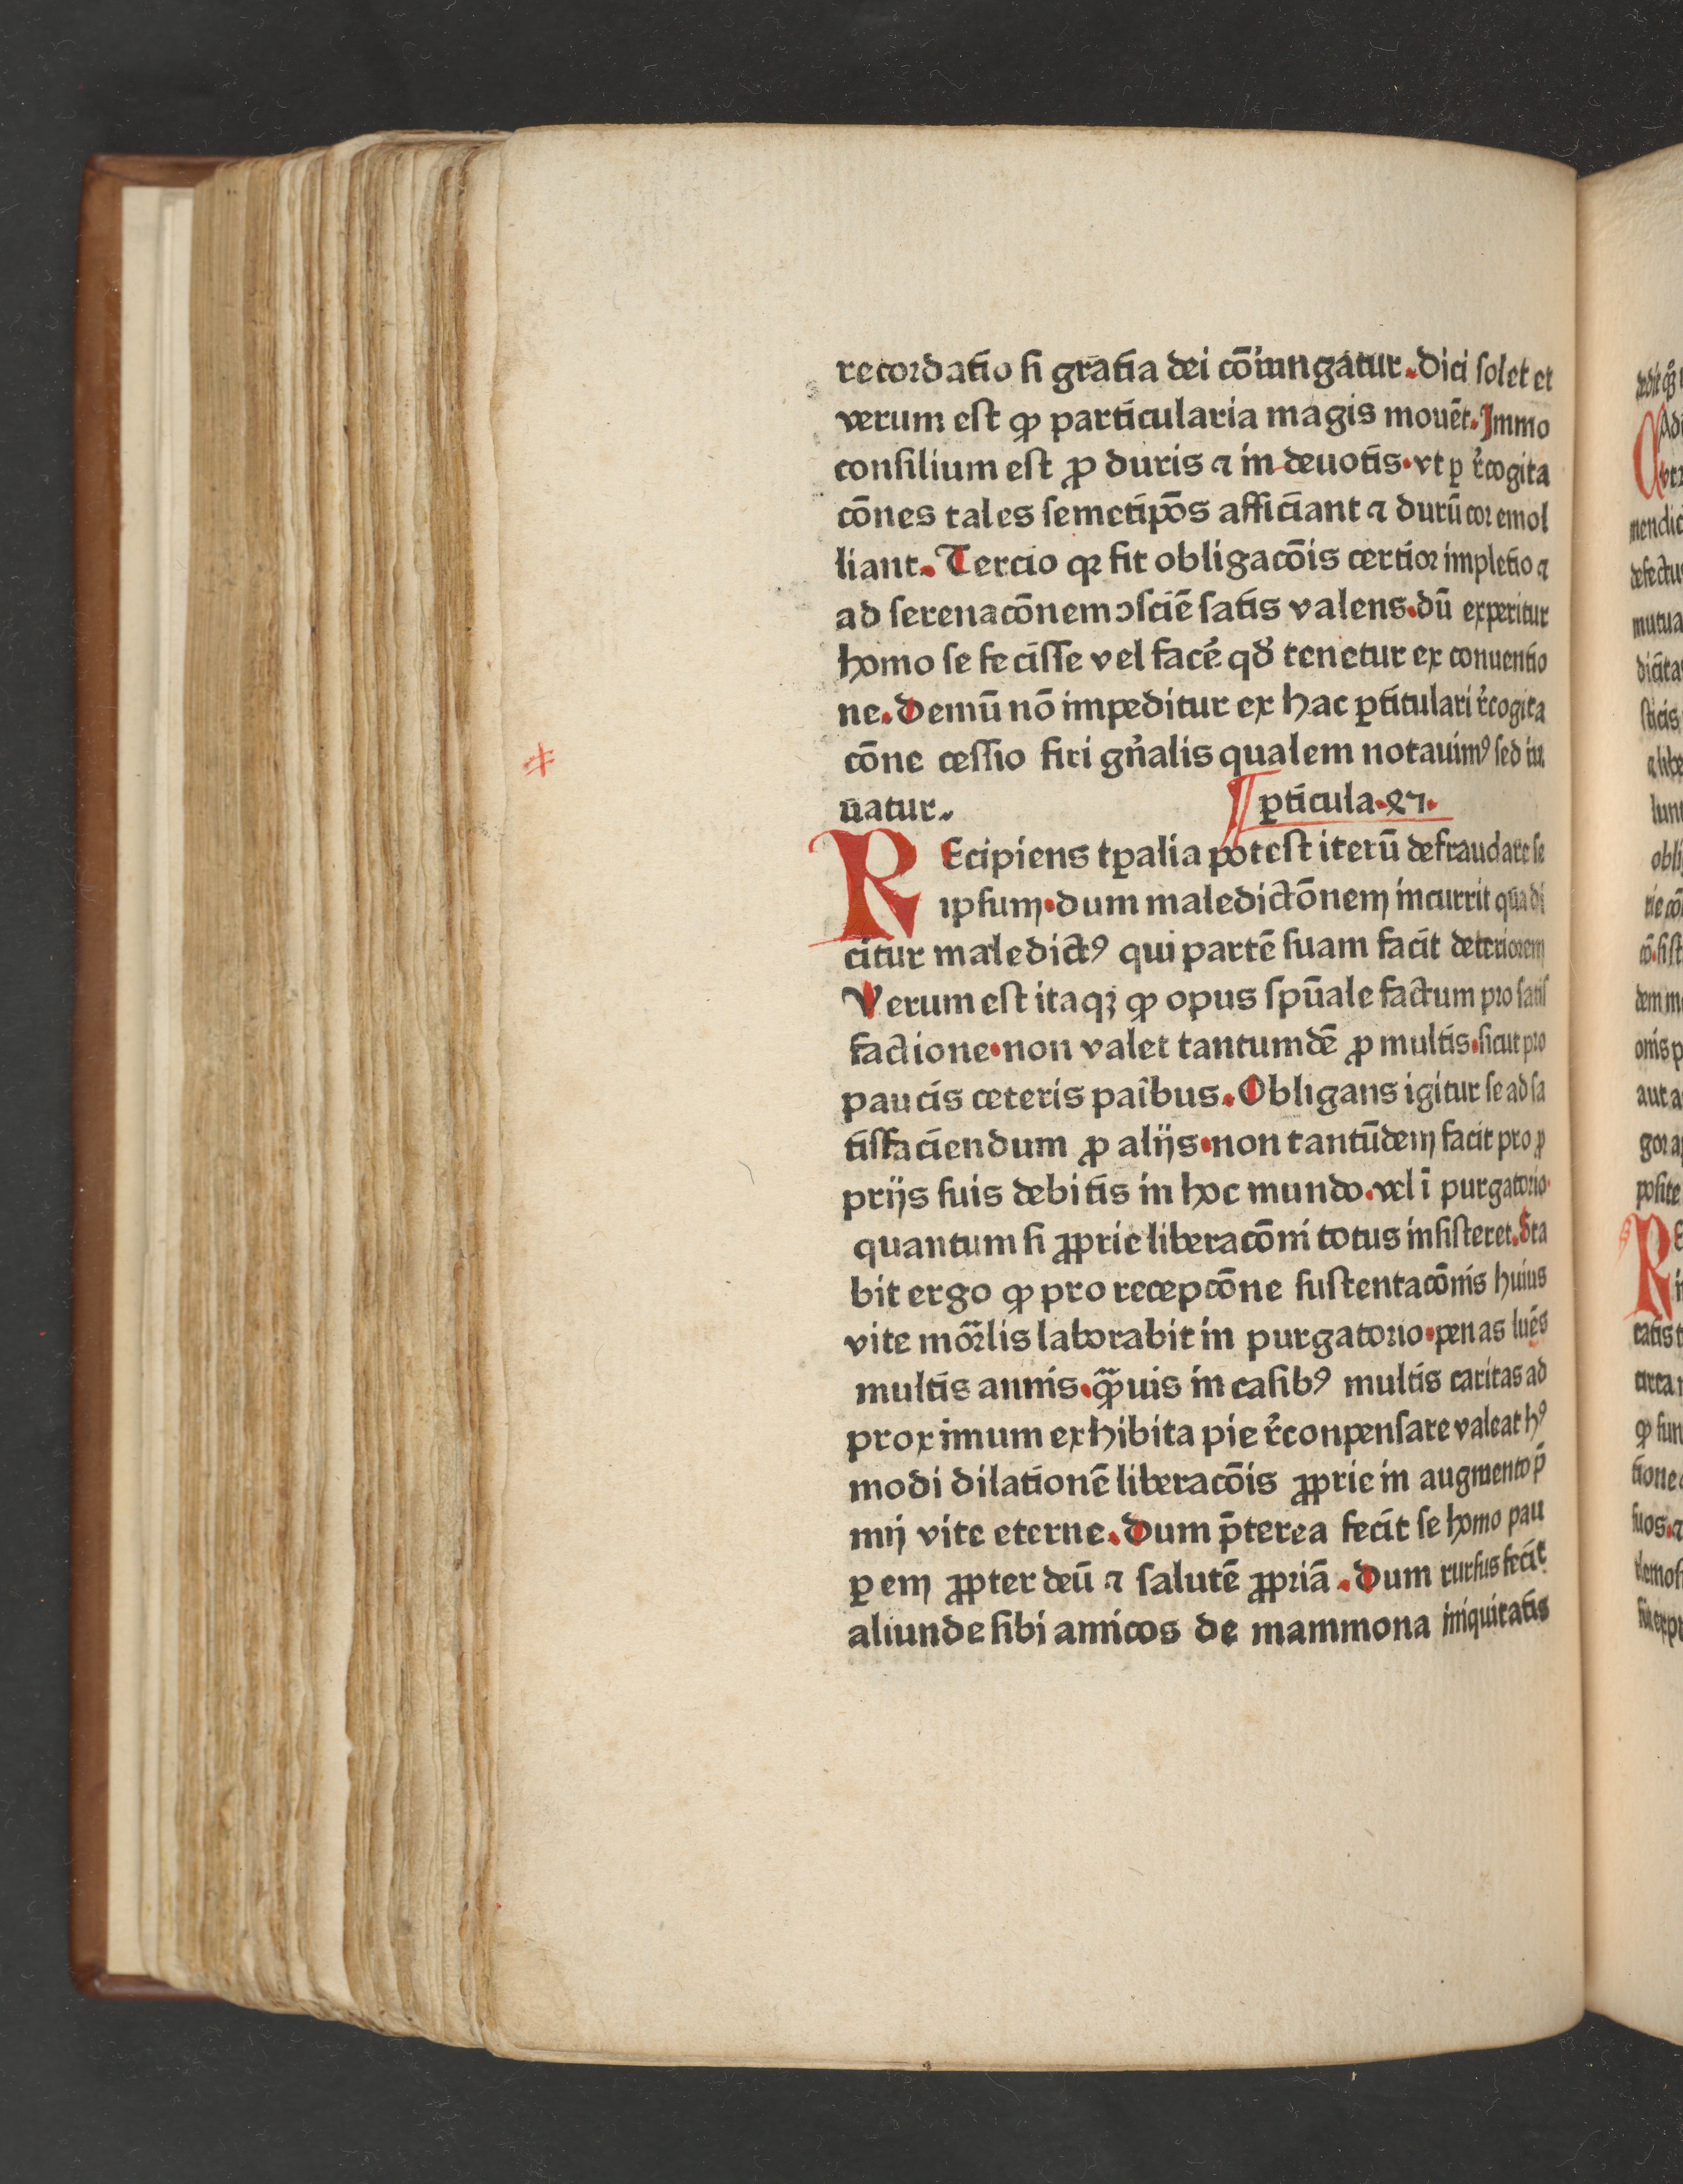 recordatio si gratia dei cōiungatur. Dici solet et
verum est ꝙ particularia magis mouēt. Immo
consilium est ꝓ duris ⁊ in deuotis. vt ꝑ r̄cogita
cōnes tales semetipōs afficiant ⁊ durū cor emol
liant. Tercio qꝛ fit obligacōis certior impletio ⁊
ad serenacōnem ↄsciē satis valens. dū experitur
homo se fecisse vel facē qd̄ tenetur ex conuentio
ne. Demū nō impeditur ex hac ꝑticulari r̄cogita
cōne cessio firi gn̄alis qualem notauimꝰ sed iu
uatur.
ꝑticula. 27.
REcipiens tꝑalia potest iterū defraudare se
ipsum. dum maledictōnem incurrit qua di
citur maledictꝰ qui partē suam facit deteriorem
Verum est itaqꝫ ꝙ opus spūale factum pro satis
factione. non valet tantumdē ꝓ multis. sicut pro
paucis ceteris paribus. Obligans igitur se ad sa
tisfaciendum ꝓ alijs. non tantūdem facit pro ꝓ
prijs suis debitis in hoc mundo. vel ī purgatorio.
quantum si ꝓprie liberacōni totus insisteret. Sta
bit ergo ꝙ pro recepcōne sustentacōnis huius
vite mōrlis laborabit in purgatorio. penas luēs
multis annis. qͣꝫuis in casibꝰ multis caritas ad
proximum exhibita pie r̄conpensare valeat hꝰ
modi dilationē liberacōis ꝓprie in augmento p̄
mij vite eterne. Dum p̄terea fecit se homo pau
ꝑem ꝓpter deū ⁊ salutē ꝓpriā. Dum rursus fecit
aliunde sibi amicos de mammona iniquitatis